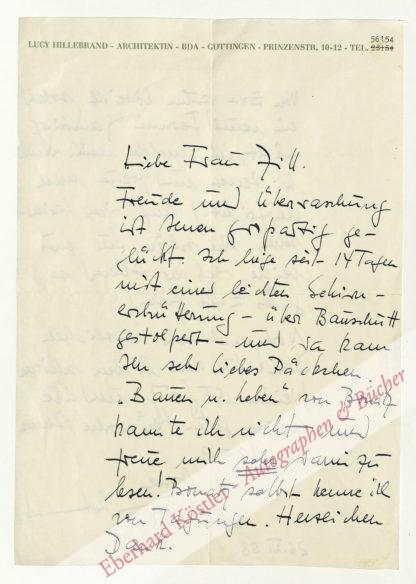 56154
LUCY HILLEBRAND - ARCHITEKTIN - BDA - GÖTTINGEN - PRINZENSTR. 10-12 - TEL. 23154
Liebe Frau Zill.
Freude und Überraschung
ist Ihnen großartig ge-
glückt. Ich liege seit 14 Tagen
mit einer leichten Gehirn-
erschütterung - über Bauschutt
gestolpert - und da kam
Ihr sehr liebes Päckchen.
"Bauen u. Leben" von Bonatz
kannte ich nicht und
freue mich sehr darin zu
lesen! Bonatz selbst kenne ich
von Tagungen. Herzlichen
Dank.
Eberhard Köstler Autographen & Bücher